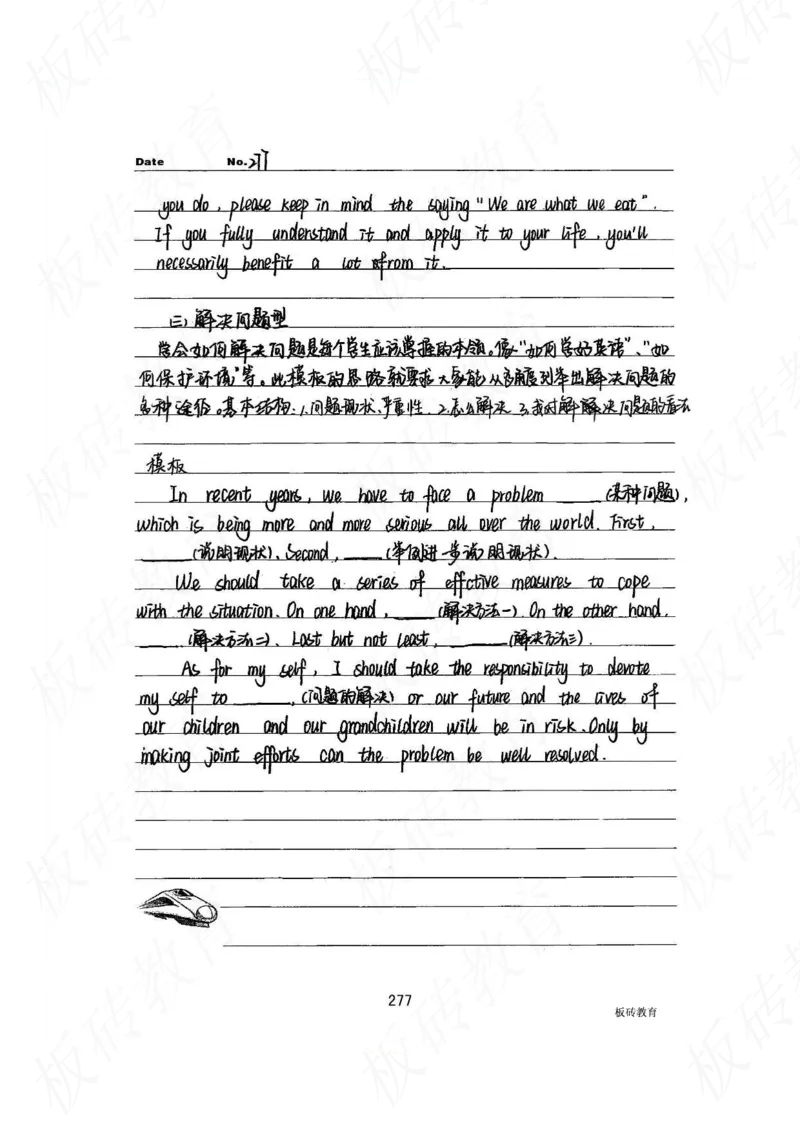 Date No.277
you do, please keep in mind the saying "We are what we eat".
If you fully understand it and apply it to your life, you'll
necessarily benefit a lot from it.
三) 解决问题型
学会如何解决问题是每个学生应该掌握的本领。像"如何学好英语"、"如
何保护环境"等。此模板的思路就要求大家能从多角度列举出解决问题的
各种途径。基本结构:1.问题现状、严重性 2.怎么解决 3.我对解解决问题的看法
模板
In recent years, we have to face a problem ____ (某种问题),
which is being more and more serious all over the world. First,
____(说明现状). Second, ____(举例进一步说明现状).
We should take a series of effctive measures to cope
with the situation. On one hand, ____ (解决方法一). On the other hand,
____(解决方法二). Last but not least, ____(解决方法三).
As for my self, I should take the responsibility to devote
my self to ____, (问题的解决) or our future and the lives of
our children and our grandchildren will be in risk. Only by
making joint efforts can the problem be well resolved.
277
板砖教育